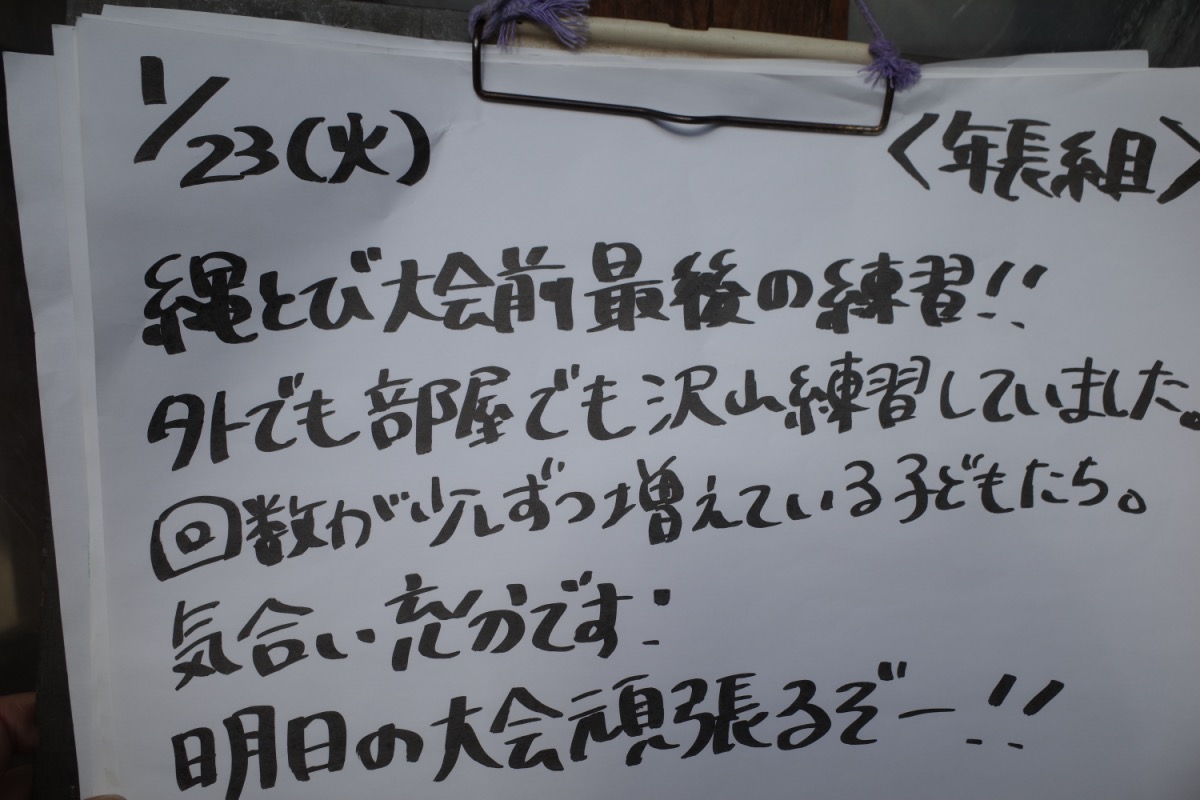 1/23(火) 〈年長組〉
縄とび大会前最後の練習!!
外でも部屋でも沢山練習していました。
回数が少しずつ増えている子どもたち。
気合い充分です!
明日の大会頑張るぞー!!